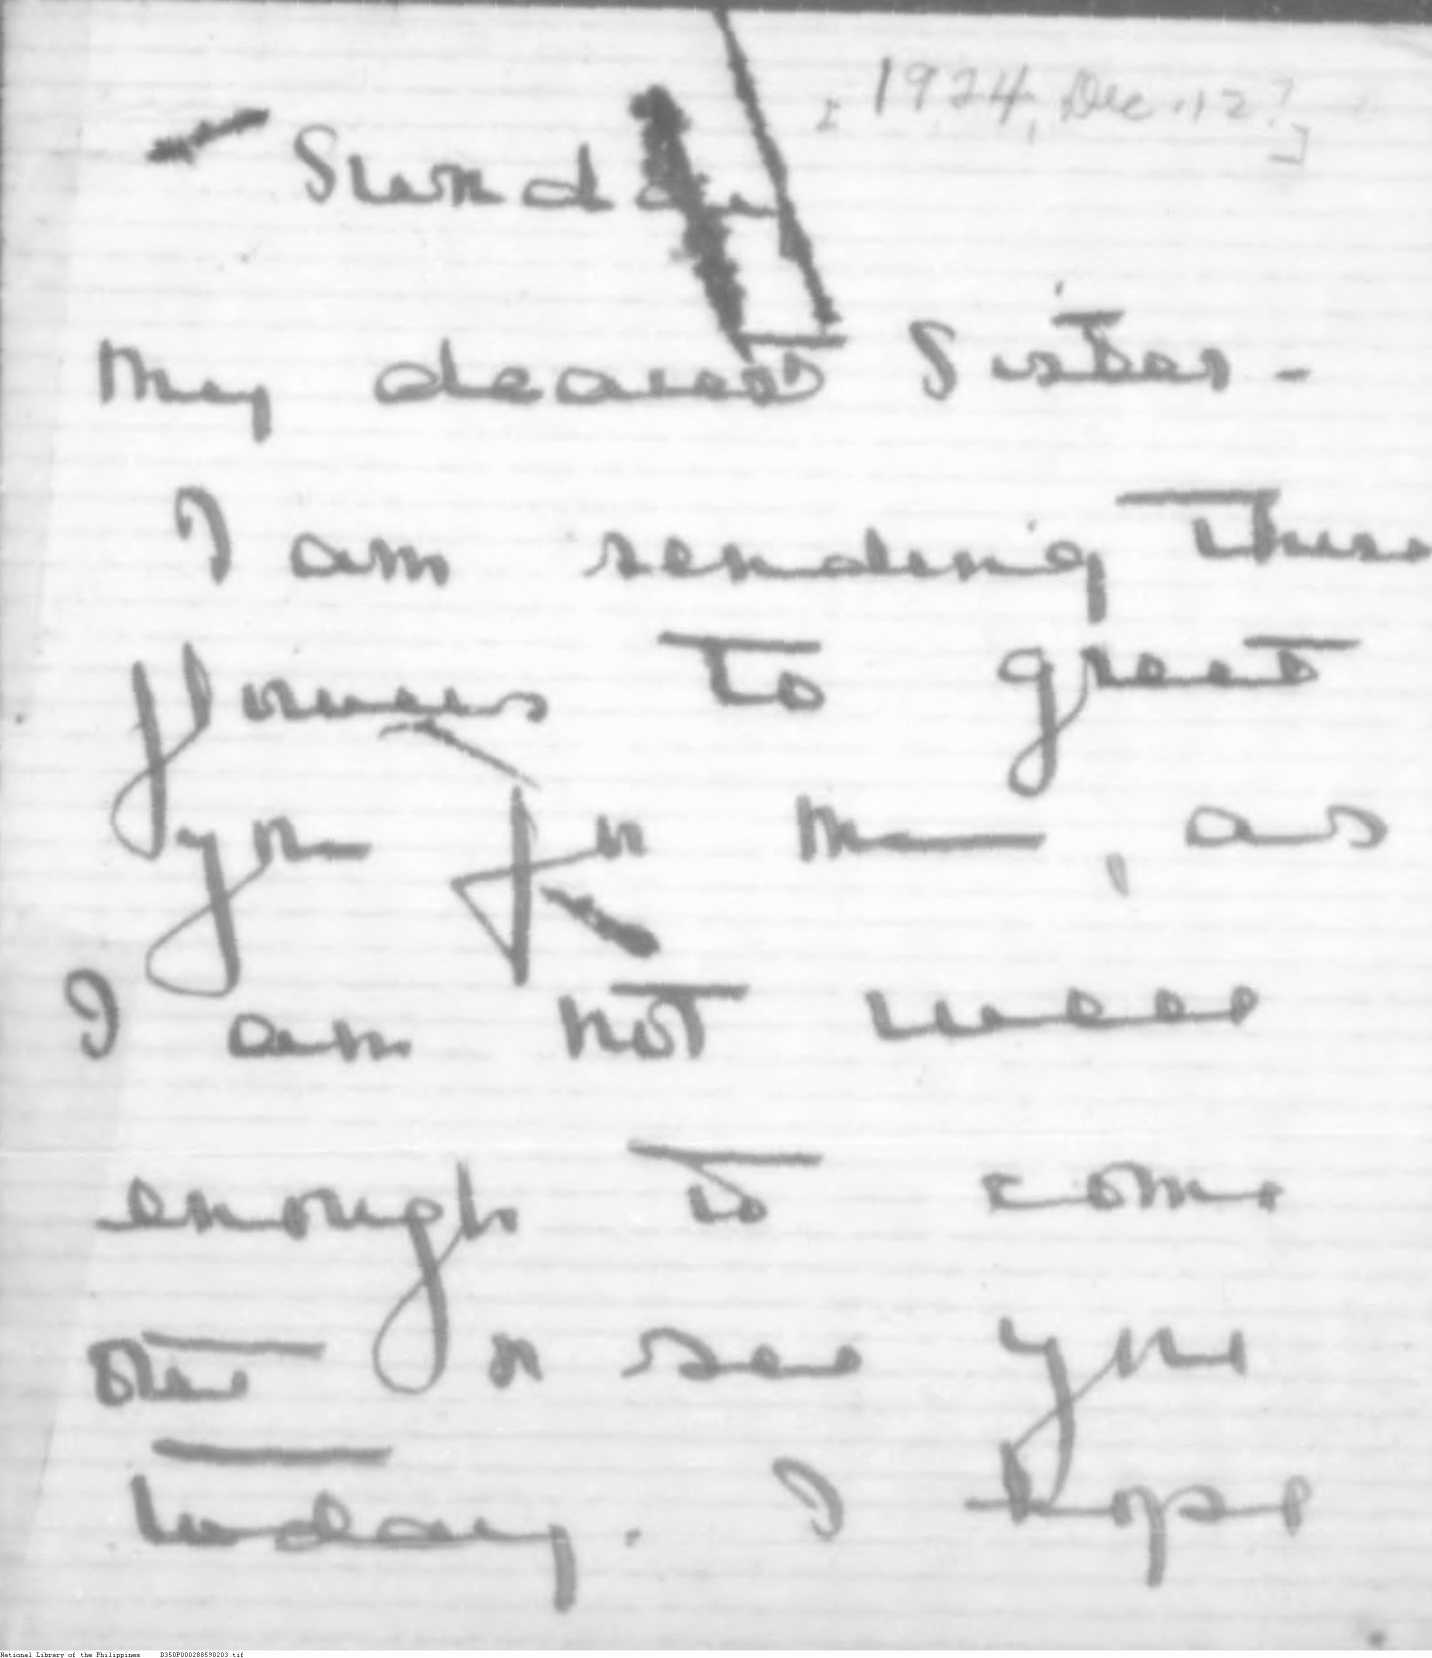 [1924, Dec. 12?]
Sunday
My dearest Sister -
I am sending these
flowers to greet
you for me, as
I am not well
enough to come
out to see you
today. I hope
National Library of the Philippines D350P000288598203.tif